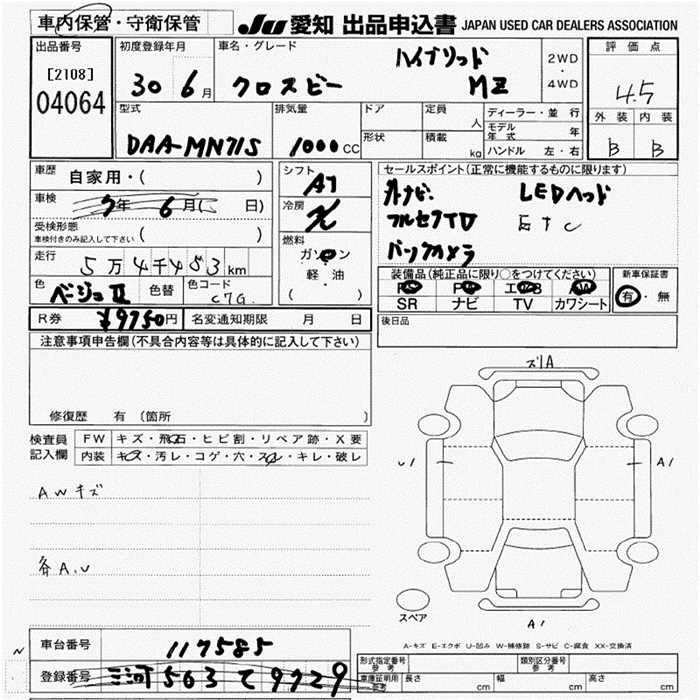 車内保管・守衛保管
JU 愛知 出品申込書 JAPAN USED CAR DEALERS ASSOCIATION
出品番号
[2108]
04064
初度登録年月
30 6月
車名・グレード
クロスビー
ハイブリッド
MZ
2WD
・
4WD
評価点
4.5
外装 内装
B B
型式
DAA-MN71S
排気量
1000CC
ドア
形状
定員 人
積載 kg
ディーラー・並行
モデル年式 年
ハンドル 左・右
車歴
自家用・( )
車検
7年 6月( 日)
受検形態
車検付きのみ記入して下さい ( )
走行
5万4千453km
色
ベージュII
色替
色コード
C7G
シフト
AT
冷房
燃料
ガソリン
軽・油
( )
セールスポイント(正常に機能するものに限ります)
外ナビ LEDヘッド
フルセグTV ETC
バックカメラ
装備品(純正品に限り○をつけてください)
PS PW エアB AW
SR ナビ TV カワシート
新車保証書
有・無
R券 ¥9750円
名変通知期限 月 日
後日品
注意事項申告欄(不具合内容等は具体的に記入して下さい)
修復歴 有 (箇所 )
検査員
記入欄
FW キズ・飛石・ヒビ割・リペア跡・X要
内装 キズ・汚レ・コゲ・穴・スレ・キレ・破レ
AWキズ
各A.U
ズ1A
U1
A1
A1
スペア
A-キズ E-エクボ U-凹み W-補修跡 S-サビ C-腐食 XX-交換済
車台番号
117585
登録番号
三河 563 て 9729
形式指定番号
参考
類別区分番号
参考
車庫証明用
参考
長さ cm 幅 cm 高さ cm